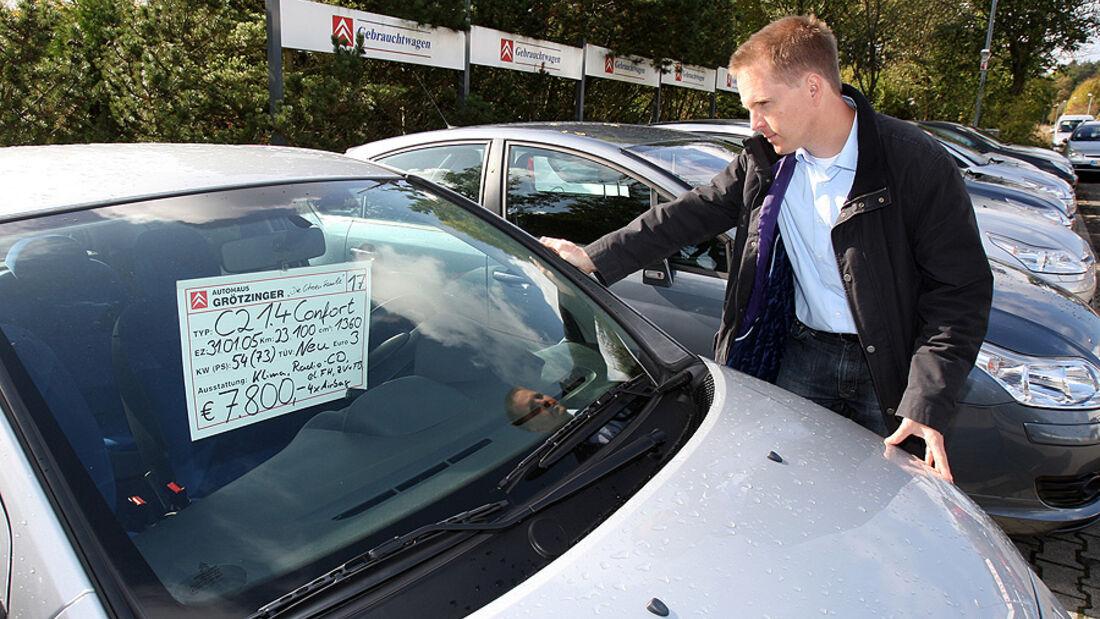 Gebrauchtwagen
Gebrauchtwagen
Gebrauchtwagen
Gebrauchtwagen
AUTOHAUS
GRÖTZINGER
"Die Citroën Familie"
17
TYP: C2 1.4 Confort
EZ: 31.01.05 Km: 33.100 cm³: 1360
KW (PS): 54(73) TÜV: Neu Euro 3
Ausstattung: Klima, Radio-CD,
el.FH, ZV+FB
€ 7.800,- 4xAirbag